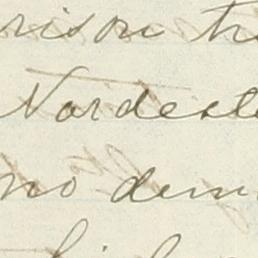 rison tr
Nordeste
no dem